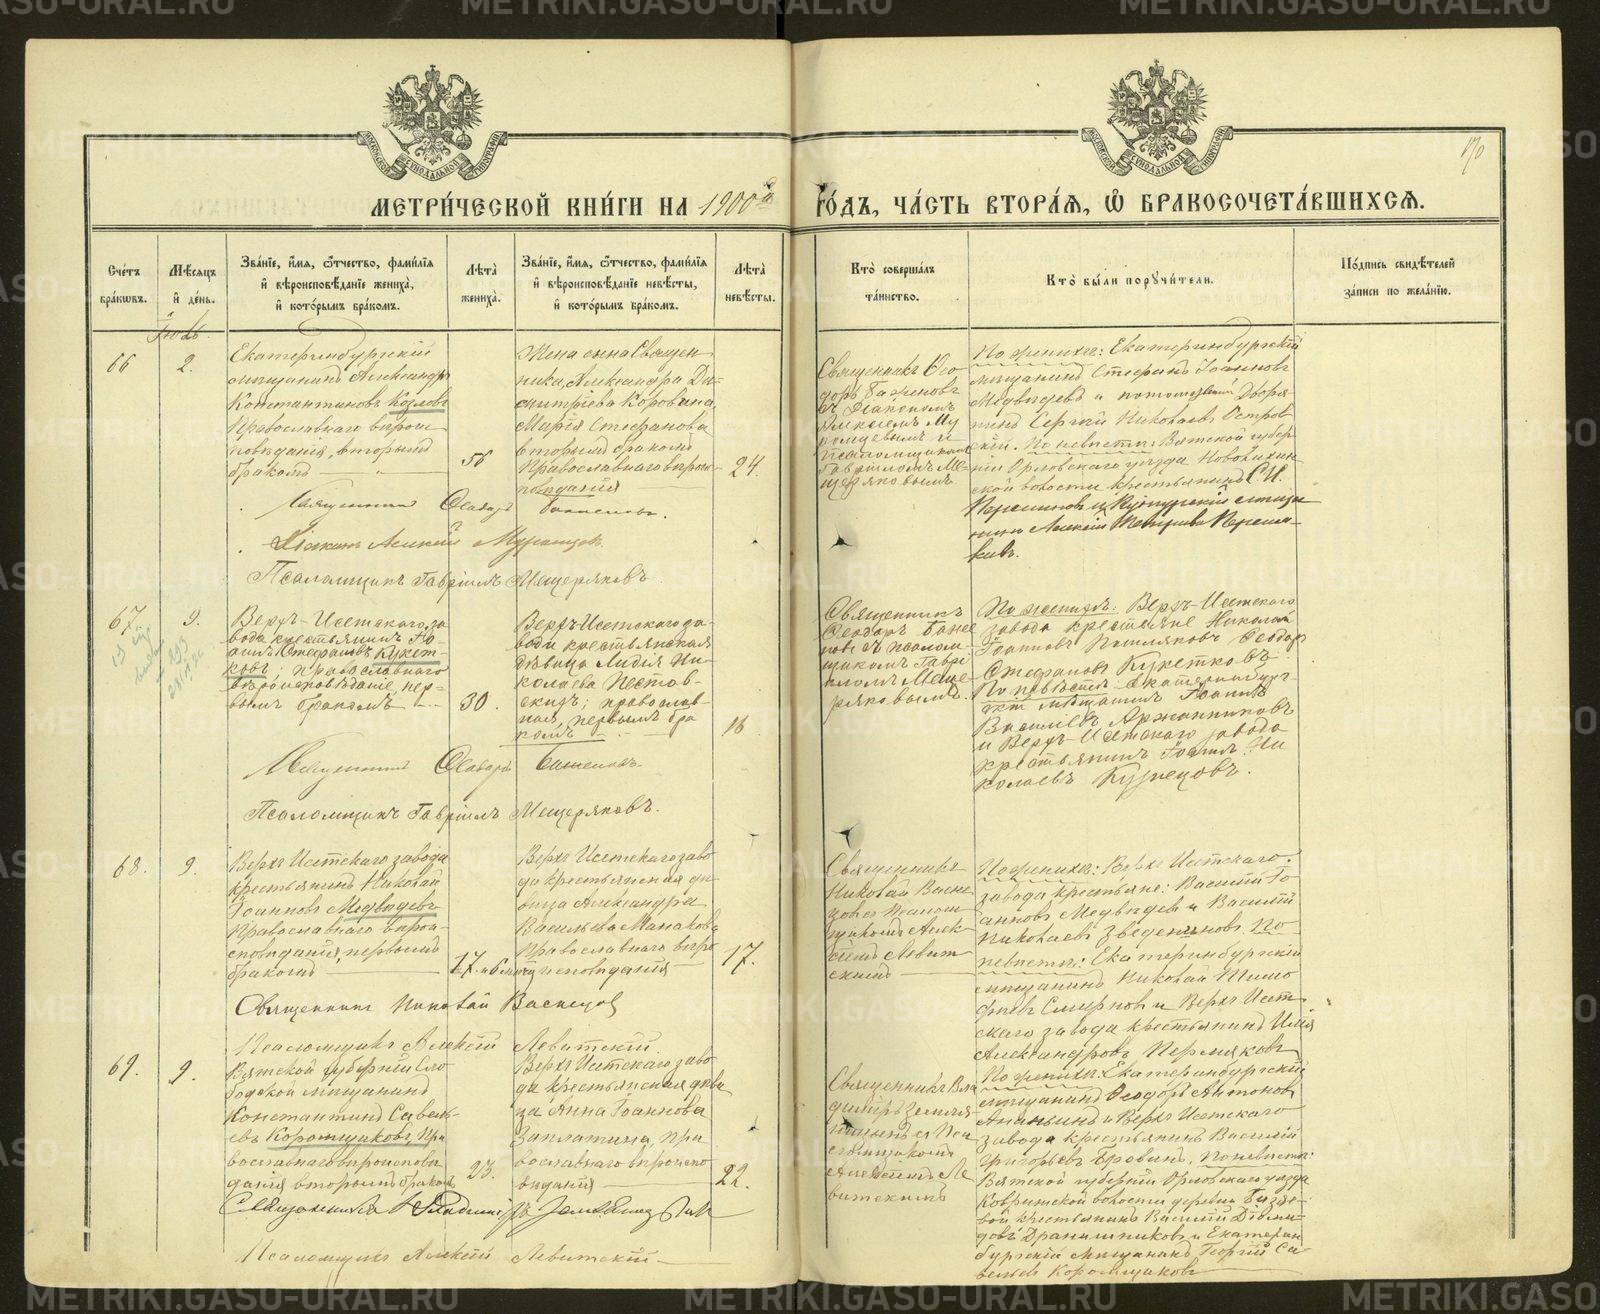 МЕТРИ́ЧЕСКОЙ КНИ́ГИ НА 1900й ГО́ДЪ, ЧА́СТЬ ВТОРА́Я, Ѽ БРАКОСОЧЕТА́ВШИХСЯ.
170
Сче́тъ бра́ковъ.
Мѣ́сяцъ и҆ де́нь.
Зва́нїе, и҆́мя, ѻ҆́тчество, фами́лїя и҆ вѣроисповѣ́данїе жениха̀, и҆ кото́рымъ бра́комъ.
Лѣ́та жениха̀.
Зва́нїе, и҆́мя, ѻ҆́тчество, фами́лїя и҆ вѣроисповѣ́данїе невѣ́сты, и҆ кото́рымъ бра́комъ.
Лѣ́та невѣ́сты.
Кто̀ соверша́лъ та́инство.
Кто̀ бы́ли порꙋчи́тели.
По́дпись свидѣ́телей за́писи по жела́нїю.
66
2.
Екатеринбургскій
мѣщанинъ Александръ
Константиновъ Козловъ
Православнаго вѣроис-
повѣданія, вторымъ
бракомъ
56
Жена сына Священ
ника, Александра Ди-
митріева Коровина,
Марія Стефанова
вторымъ бракомъ
Православнаго вѣроис-
повѣданія
24.
Священникъ Ѳео
доръ Баженовъ
съ Діакономъ
Алексіемъ Му
ромцевымъ и
Псаломщикомъ
Гавріиломъ Ме
щеряковымъ
По женихѣ: Екатеринбургскій
мѣщанинъ Стефанъ Іоанновъ
Медвѣдевъ и потомственный Дворя-
нинъ Сергій Николаевъ Остров
скій. По невѣстѣ: Вятской губер
ніи Орловскаго уѣзда
ской волости крестьянинъ
Священникъ Ѳеодоръ Баженовъ.
Діаконъ Алексій Муромцевъ.
Псаломщикъ Гавріилъ Мещеряковъ.
67.
9.
Верхъ-Исетскаго за
вода крестьянинъ Іо-
аннъ Стефановъ Кукет-
ковъ; православнаго
вѣроисповѣданіе, пер-
вымъ бракомъ
30.
Верхъ-Исетскаго за-
вода крестьянская
дѣвица Лидія Ни-
колаева Пестов-
скихъ; православ-
наго, первымъ бра
комъ
16
Священникъ
Ѳеодоръ Баже
новъ съ псалом-
щикомъ Гаврі-
иломъ Меще-
ряковымъ.
По женихѣ: Верхъ-Исетскаго
завода крестьяне Николай
Іоанновъ Пошляковъ Ѳеодоръ
Стефановъ Кукетковъ.
По невѣстѣ Екатеринбург-
скій мѣщанинъ Іоаннъ
Василіевъ Аржанниковъ
и Верхъ-Исетскаго завода
крестьянинъ Іоаннъ Ни
колаевъ Кузнецовъ.
Священникъ Ѳеодоръ Баженовъ
Псаломщикъ Гавріилъ Мещеряковъ.
68.
9.
Верхъ Исетскаго завода
крестьянинъ Николай
Іоанновъ Медвѣдевъ
Православнаго вѣрои-
сповѣданія, первымъ
бракомъ
17
Верхъ Исетскаго заво
да крестьянская дѣ
вица Александра
Васильева Манакова
Православнаго вѣро
исповѣданія
17.
Священникъ
Николай Васне
цовъ съ Псалом-
щикомъ Алек-
сіемъ Левит-
скимъ
По женихѣ: Верхъ Исетскаго
завода крестьяне: Василій Іо-
анновъ Медвѣдевъ и Василій
Николаевъ Зведениновъ. По
невѣстѣ: Екатеринбургскій
мѣщанинъ Николай Тимо
феевъ Смирновъ и Верхъ Исет-
скаго завода крестьянинъ Илія
Александровъ Пермяковъ
Священникъ Николай Васнецовъ
Псаломщикъ Алексій Левитскій
69.
9.
Вятской губерніи Сло
бодской мѣщанинъ
Константинъ Савель-
евъ Коромщиковъ, Пра
вославнаго вѣроисповѣ
данія вторымъ бракомъ
23.
Верхъ Исетскаго заво
да крестьянская дѣви
ца Анна Іоаннова
Заплатина, Пра
вославнаго вѣроиспо
вѣданія
22.
Священникъ Вла
диміръ Земля-
ницынъ съ Пса
ломщикомъ
Алексіемъ Ле
витскимъ
По женихѣ: Екатеринбургскій
мѣщанинъ Ѳеодоръ Антоновъ
Ананьинъ и Верхъ Исетскаго
завода крестьянинъ Василій
Григорьевъ Еровинъ. По невѣстѣ:
Вятской губерніи Орловскаго уѣзда
волости деревни
крестьянинъ Василій Діоми-
довъ Дранишниковъ и Екатерин
бургскій мѣщанинъ Георгій Са
вельевъ Коромщиковъ
Псаломщикъ Алексій Левитскій
METRIKI.GASO-URAL.RU